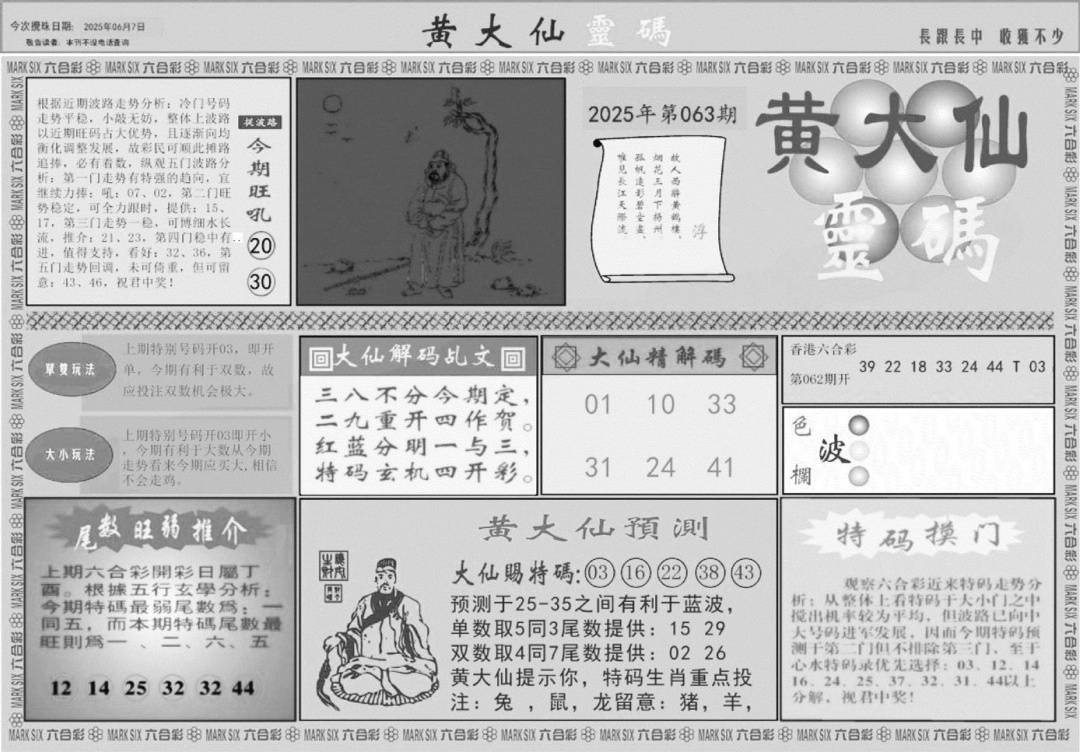 今次搅珠日期: 2025年06月7日
敬告读者: 本刊不设电话查询
黄大仙靈碼
長跟長中 收獲不少
MARK SIX 六合彩 MARK SIX 六合彩 MARK SIX 六合彩 MARK SIX 六合彩 MARK SIX 六合彩 MARK SIX 六合彩 MARK SIX 六合彩 MARK SIX 六合彩 MARK SIX 六合彩 MARK SIX 六合彩 MARK SIX 六合彩
根据近期波路走势分析: 冷门号码
走势平稳, 小敲无妨, 整体上波路
以近期旺码占大优势, 且逐渐向均
衡化调整发展, 故彩民可顺此摊路
追捧, 必有着数, 纵观五门波路分
析: 第一门走势有特强的趋向, 宜
继续力捧: 吼: 07、02, 第二门旺
势稳定, 可全力跟时, 提供: 15、
17, 第三门走势一稳, 可博细水长
流, 推介: 21、23, 第四门稳中有..
进, 值得支持, 看好: 32、36, 第
五门走势回调, 未可倚重, 但可留
意: 43、46, 祝君中奖!
捉波路
今期旺吼
20
30
2025年第063期
故人西辞黄鹤楼,
烟花三月下扬州。
孤帆远影碧空尽,
唯见长江天际流。
浮
黄大仙
靈碼
單雙玩法
上期特别号码开03, 即开
单, 今期有利于双数, 故
应投注双数机会极大。
大小玩法
上期特别号码开03即开小
, 今期有利于大数从今期
走势看来今期应买大, 相信
不会走鸡。
大仙解码乩文
三八不分今期定,
二九重开四作贺。
红蓝分明一与三,
特码玄机四开彩。
大仙精解碼
01 10 33
31 24 41
香港六合彩
第062期开
39 22 18 33 24 44 T 03
色波欄
尾数旺弱推介
上期六合彩開彩日屬丁
酉。根據五行玄學分析:
今期特碼最弱尾數爲: 一
同五, 而本期特碼尾數最
旺則爲一 、二、六、五
12 14 25 32 32 44
黄大仙預測
大仙賜特碼:03 16 22 38 43
预测于25-35之间有利于蓝波,
单数取5同3尾数提供: 15 29
双数取4同7尾数提供: 02 26
黄大仙提示你, 特码生肖重点投
注: 兔 , 鼠, 龙留意: 猪, 羊,
特码摸门
观察六合彩近来特码走势分
析: 从整体上看特码于大小门之中
搅出机率较为平均, 但波路已向中
大号码进军发展, 因而今期特码预
测于第二门但不排除第三门、至于
心水特码录优先选择: 03. 12. 14
16. 24. 25. 37. 32. 31. 44以上
分解, 祝君中奖!
MARK SIX 六合彩 MARK SIX 六合彩 MARK SIX 六合彩 MARK SIX 六合彩 MARK SIX 六合彩 MARK SIX 六合彩 MARK SIX 六合彩 MARK SIX 六合彩 MARK SIX 六合彩 MARK SIX 六合彩 MARK SIX 六合彩